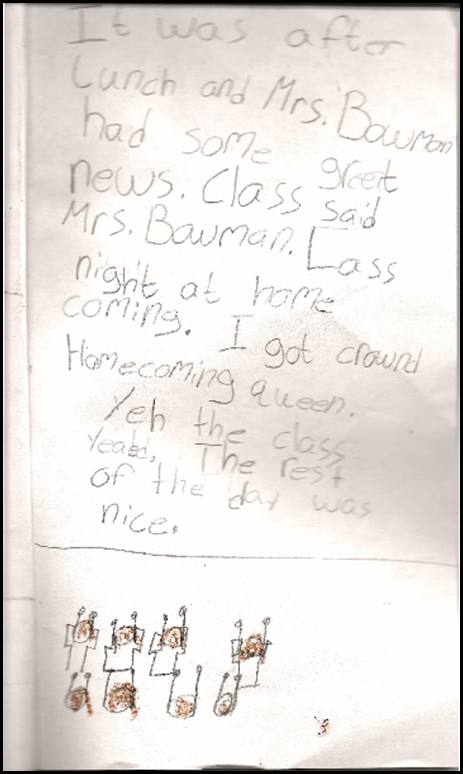 It was after
Lunch and Mrs. Bowman
had some greet
news. Class said
Mrs. Bowman. Lass
night at home
coming. I got crownd
Homecoming queen.
Yeh the class
Yeahd. The rest
of the day was
nice.